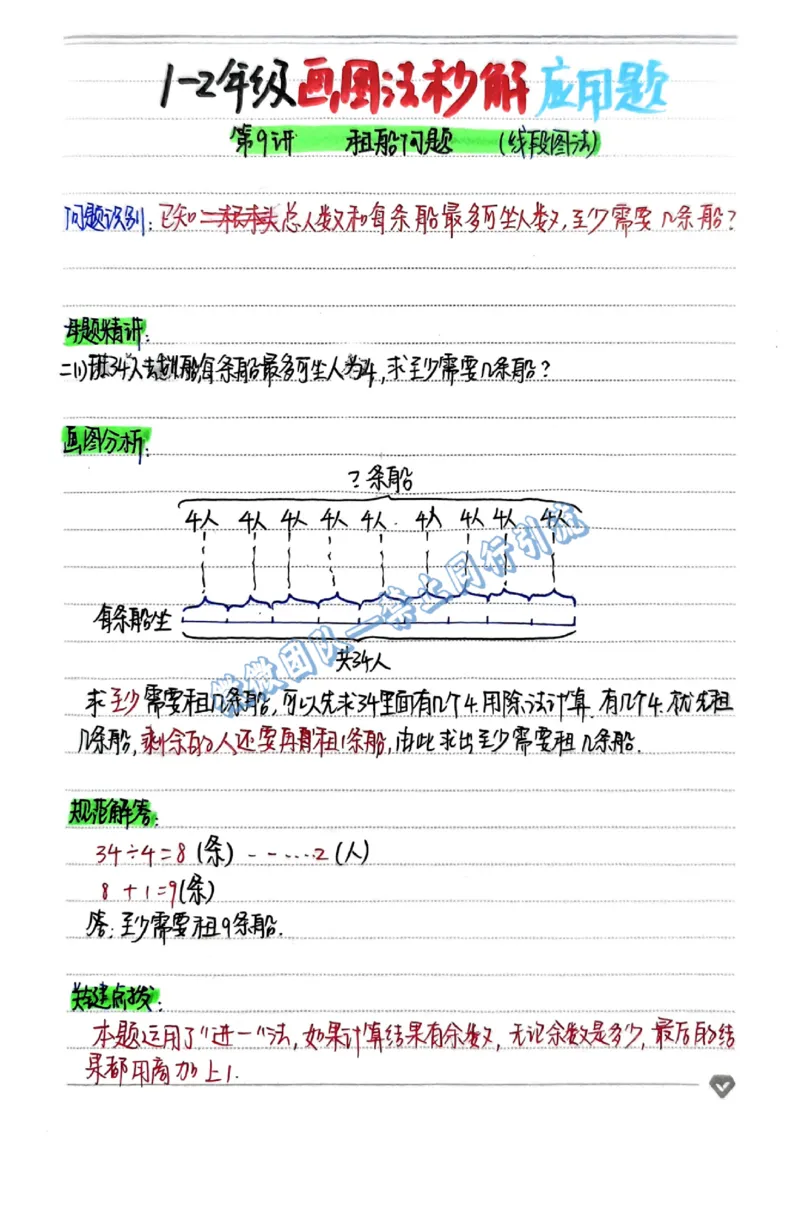 1-2年级画图法秒解应用题
第9讲 租船问题 (线段图法)
问题识别:已知总人数和每条船最多可坐人数,至少需要几条船?
母题精讲:
二(1)班34人去划船每条船最多可坐人为4,求至少需要几条船?
画图分析:
?条船
4人 4人 4人 4人 4人 4人 4人 4人 4人
每条船坐
共34人
求至少需要租几条船,可以先求34里面有几个4.用除法计算.有几个4.就先租
几条船,剩余的2人还要再租1条船,由此求出至少需要租几条船.
规范解答:
34÷4=8(条)……2(人)
8+1=9(条)
答:至少需要租9条船.
关键点拨:
本题运用了"进一"法,如果计算结果有余数,无论余数是多少,最后的结
果都用商加上1.